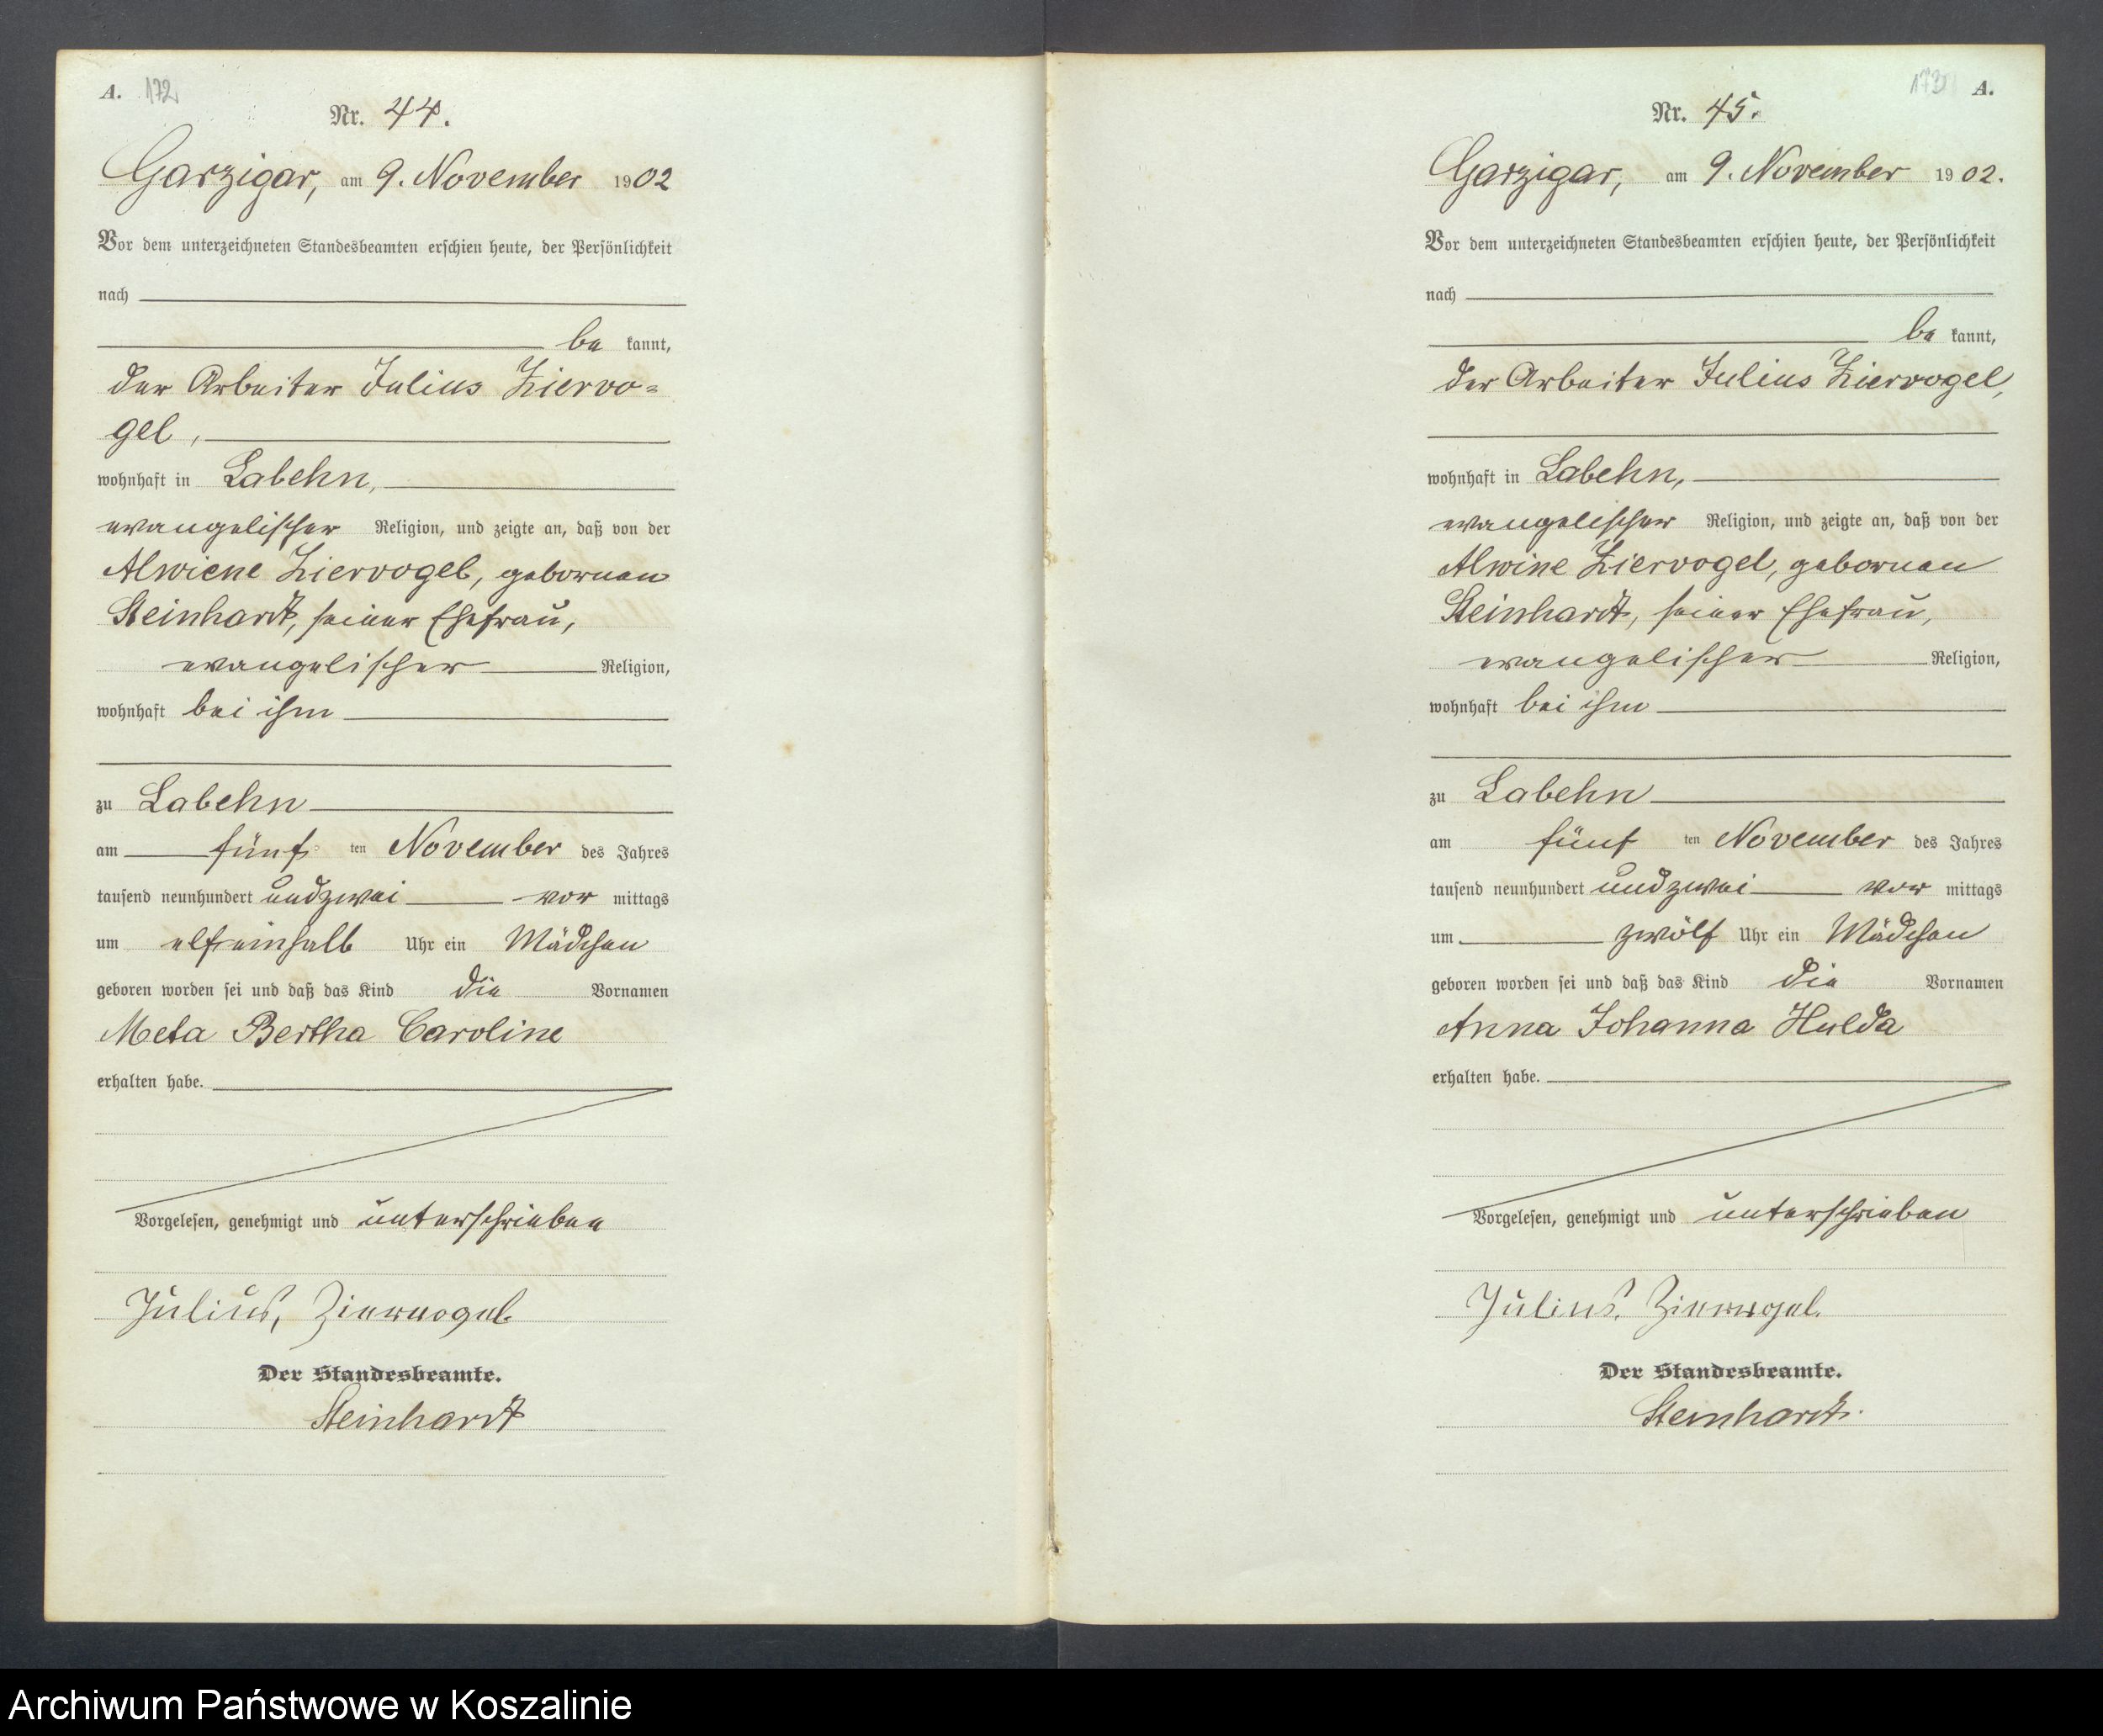 A. 172
Nr. 44.
Garzigar, am 9. November 1902
Vor dem unterzeichneten Standesbeamten erschien heute, der Persönlichkeit
nach
be kannt,
der Arbeiter Julius Ziervo=
gel,
wohnhaft in Labehn,
evangelischer Religion, und zeigte an, daß von der
Alwiene Ziervogel, gebornen
Steinhardt, seiner Ehefrau,
evangelischer Religion,
wohnhaft bei ihm
zu Labehn
am fünf ten November des Jahres
tausend neunhundert undzwei vor mittags
um elfeinhalb Uhr ein Mädchen
geboren worden sei und daß das Kind die Vornamen
Meta Bertha Caroline
erhalten habe.
Vorgelesen, genehmigt und unterschrieben
Julius, Ziervogel
Der Standesbeamte.
Steinhardt
173 A.
Nr. 45.
Garzigar, am 9. November 1902.
Vor dem unterzeichneten Standesbeamten erschien heute, der Persönlichkeit
nach
be kannt,
der Arbeiter Julius Ziervogel,
wohnhaft in Labehn,
evangelischer Religion, und zeigte an, daß von der
Alwine Ziervogel, gebornen
Steinhardt, seiner Ehefrau,
evangelischer Religion,
wohnhaft bei ihm
zu Labehn
am fünf ten November des Jahres
tausend neunhundert undzwei vor mittags
um zwölf Uhr ein Mädchen
geboren worden sei und daß das Kind die Vornamen
Anna Johanna Hulda
erhalten habe.
Vorgelesen, genehmigt und unterschrieben
Julius. Ziervogel.
Der Standesbeamte.
Steinhardt.
Archiwum Państwowe w Koszalinie